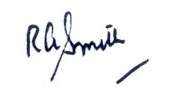 RA Smith